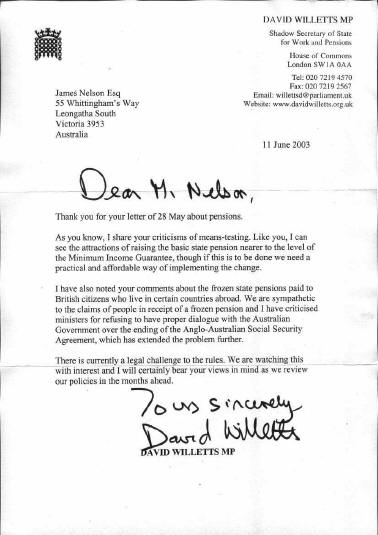 DAVID WILLETTS MP
Shadow Secretary of State
for Work and Pensions
House of Commons
London SW1A 0AA
Tel: 020 7219 4570
Fax: 020 7219 2567
Email: willettsd@parliament.uk
Website: www.davidwilletts.org.uk
James Nelson Esq
55 Whittingham's Way
Leongatha South
Victoria 3953
Australia
11 June 2003
Dear Mr Nelson,
Thank you for your letter of 28 May about pensions.
As you know, I share your criticisms of means-testing. Like you, I can
see the attractions of raising the basic state pension nearer to the level of
the Minimum Income Guarantee, though if this is to be done we need a
practical and affordable way of implementing the change.
I have also noted your comments about the frozen state pensions paid to
British citizens who live in certain countries abroad. We are sympathetic
to the claims of people in receipt of a frozen pension and I have criticised
ministers for refusing to have proper dialogue with the Australian
Government over the ending of the Anglo-Australian Social Security
Agreement, which has extended the problem further.
There is currently a legal challenge to the rules. We are watching this
with interest and I will certainly bear your views in mind as we review
our policies in the months ahead.
Yours sincerely
David Willetts
DAVID WILLETTS MP